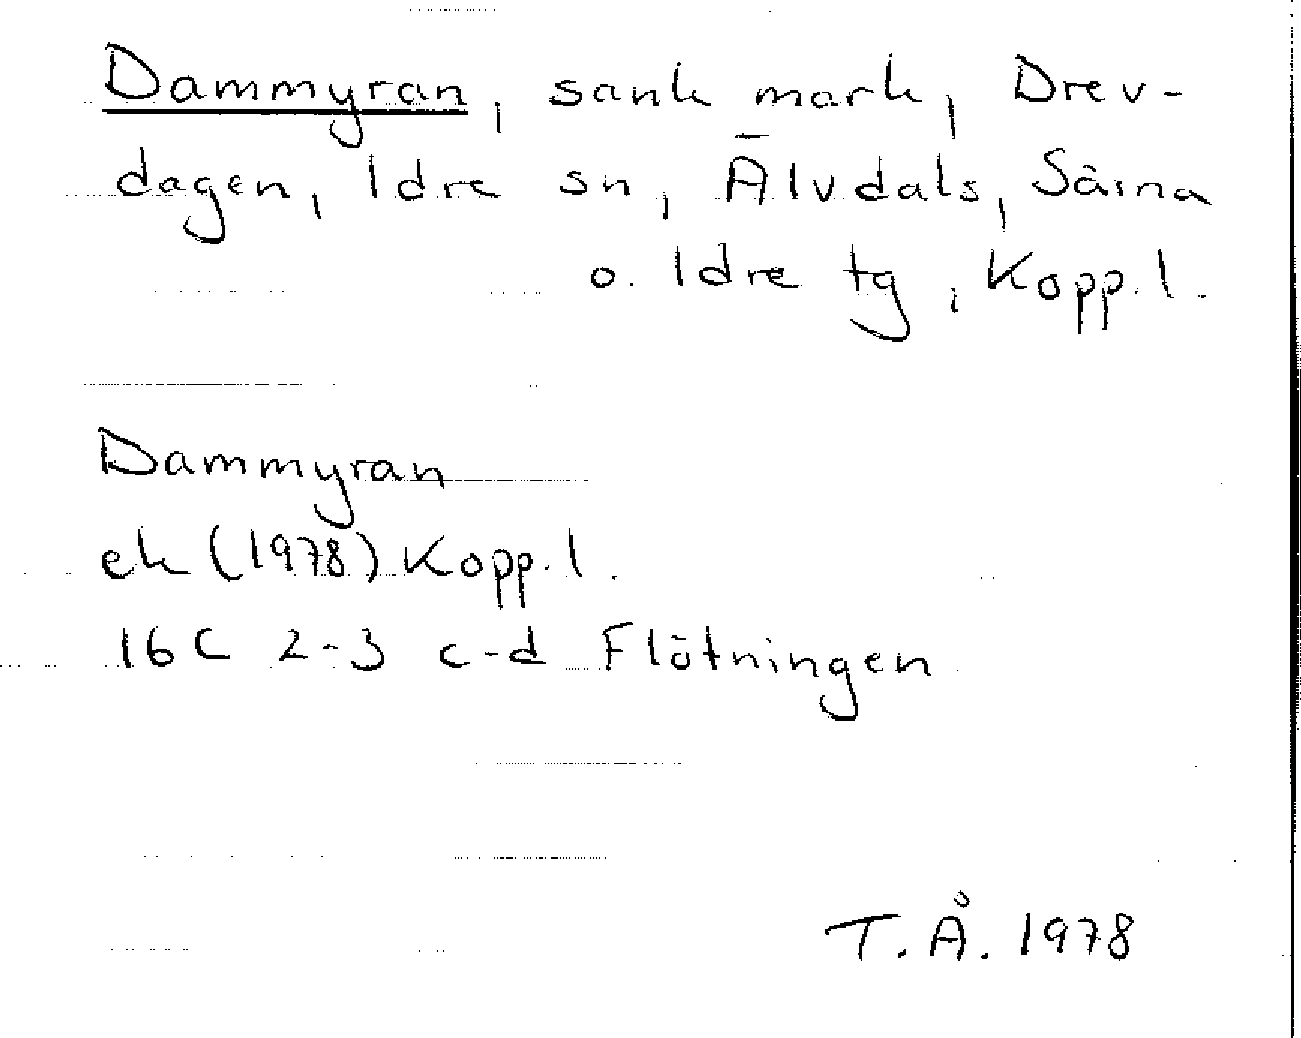 Dammyran, sank mark, Drev-
dagen, Idre sn, Älvdals, Särna
o. Idre tg, Kopp. l.
Dammyran
ek (1978) Kopp. l.
16C 2-3 c-d Flötningen
T. Å. 1978